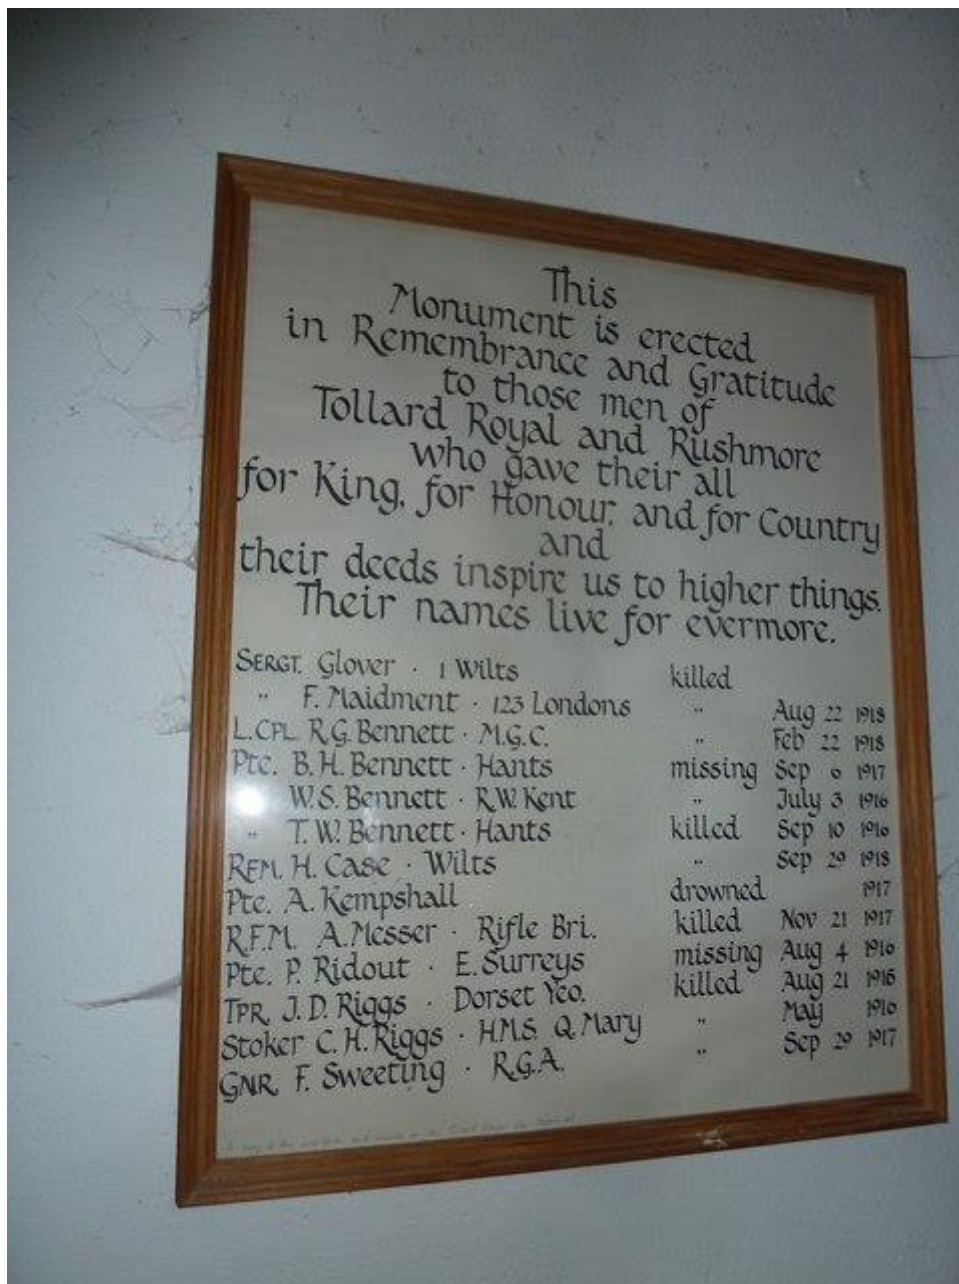 This
Monument is erected
in Remembrance and Gratitude
to those men of
Tollard Royal and Rushmore
who gave their all
for King, for Honour, and for Country
and
their deeds inspire us to higher things.
Their names live for evermore.
SERGT. Glover · 1 Wilts killed
" F. Maidment · 123 Londons " Aug 22 1918
L.CPL. R.G. Bennett · M.G.C. " Feb 22 1918
Pte. B.H. Bennett · Hants missing Sep 6 1917
W.S. Bennett · R.W. Kent " July 3 1916
" T.W. Bennett · Hants killed Sep 10 1916
RFM. H. Case · Wilts " Sep 29 1918
Pte. A. Kempshall drowned 1917
R.F.M. A. Messer · Rifle Bri. killed Nov 21 1917
Pte. P. Ridout · E. Surreys missing Aug 4 1916
TPR. J.D. Riggs · Dorset Yeo. killed Aug 21 1915
Stoker C.H. Riggs · H.M.S. Q. Mary " May 1916
GNR. F. Sweeting · R.G.A. " Sep 29 1917